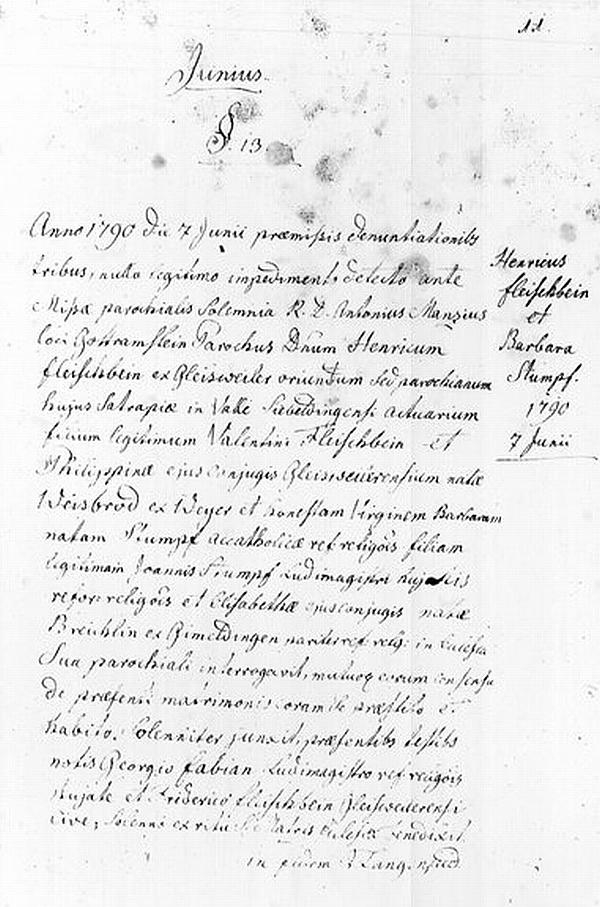 11.
Junius.
§. 13
Anno 1790 die 7 Junii præmissis denuntiationibs
tribus, nullo legitimo impedimento detecto ante
Missæ parochialis Solemnia R. D. Antonius Manzius
loci Gottramstein Parochus Dnum Henricum
fleischbein ex Gleisweiler oriundum sed parochianum
hujus Satrapiæ in Valle Siebeldingensi actuarium
filium legitimum Valentini Fleischbein et
Philippinæ ejus conjugis Gleisweilerensium natæ
Weisbrod ex Weyer et honestam Virginem Barbaram
natam Stumpf accatholicæ ref religōis filiam
legitimam Joannis Stumpf Ludimagistri
refor: religōis et Elisabethæ ejus conjugis natæ
Breichlin ex Gimeldingen pariter ref relig: in Ecclesia
Sua parochiali interrogavit, mutuoq eorum consensu
de præsenti matrimonio coram se præstito et
habito, Solenniter junxit, præsentibs testibs
notis Georgio fabian Ludimagistro ref religōis
hujate et Friderico fleischbein Gleisweilerensi
cive, Solenne ex ritu Stæ Matris Ecclesiæ benedixit.
in fidem
Henricus
fleischbein
et
Barbara
Stumpf.
1790
7 Junii